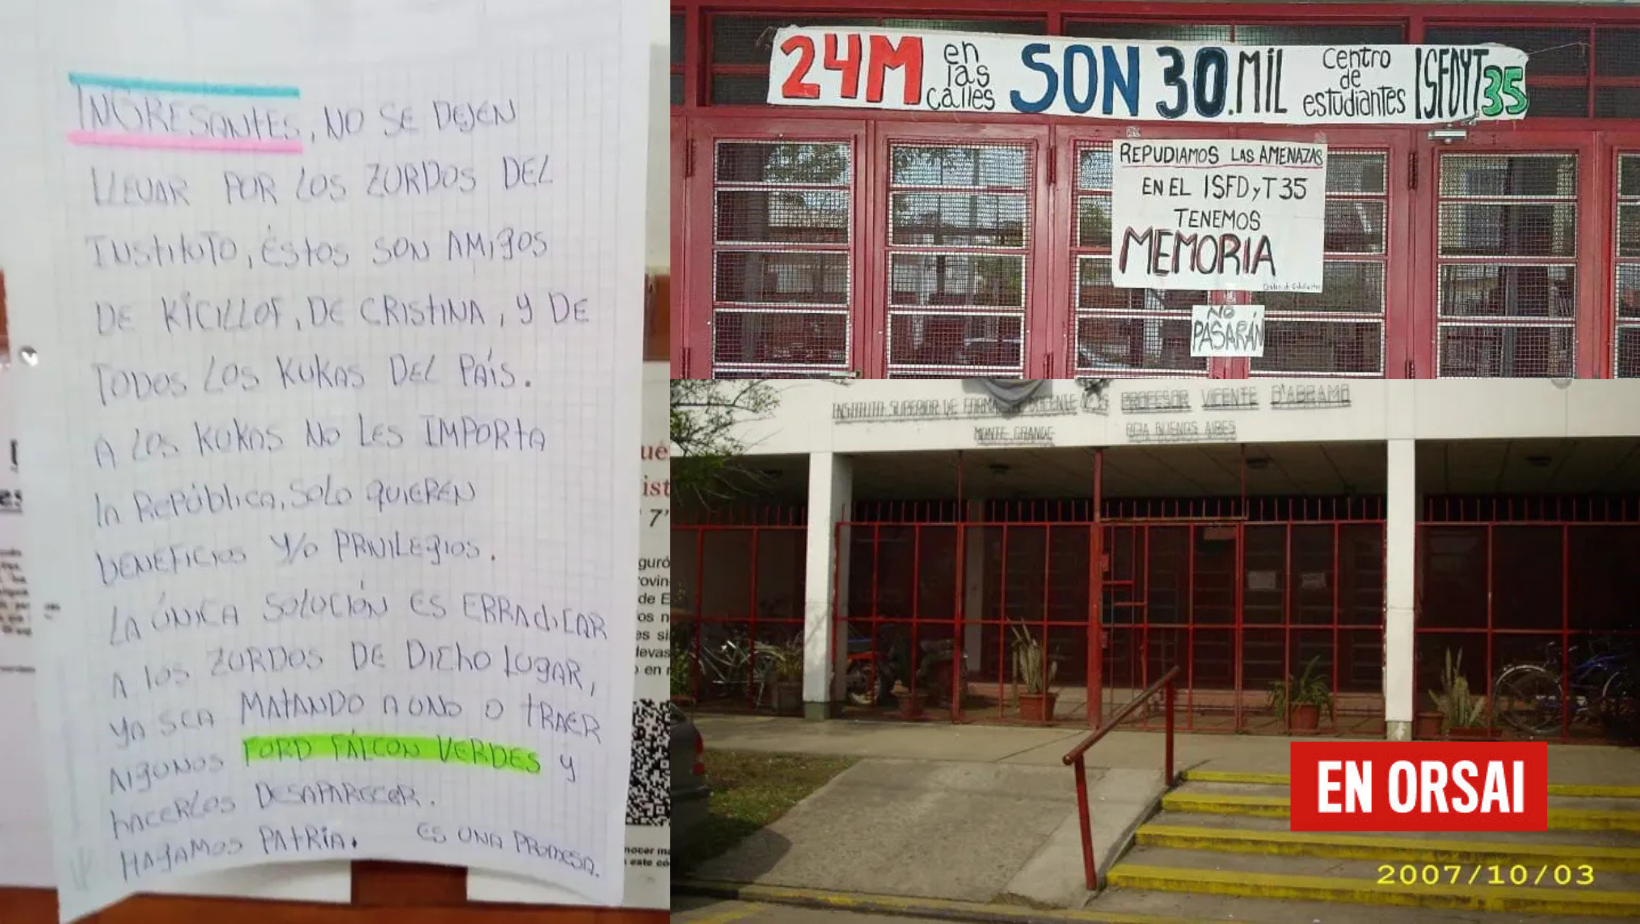 INGRESANTES, NO SE DEJEN
LLEVAR POR LOS ZURDOS DEL
INSTITUTO, ÉSTOS SON AMIGOS
DE KICILLOF, DE CRISTINA, Y DE
TODOS LOS KUKAS DEL PAÍS.
A LOS KUKAS NO LES IMPORTA
la REPÚBLICA, SOLO QUIEREN
BENEFICIOS Y/O PRIVILEGIOS.
LA ÚNICA SOLUCIÓN ES ERRADICAR
A LOS ZURDOS DE DICHO LUGAR,
YA SEA MATANDO A UNO O TRAER
ALGUNOS FORD FALCON VERDES Y
HACERLOS DESAPARECER.
HAGAMOS PATRIA. ES UNA PROMESA.
ué
ist
7'
guró
rovin
de E
os n
es si
levas
en r
nocer m
24M en las calles SON 30.MIL Centro de estudiantes ISFDYT35
REPUDIAMOS LAS AMENAZAS
EN EL ISFD y T 35
TENEMOS
MEMORIA
NO
PASARÁN
INSTITUTO SUPERIOR DE FORMACION DOCENTE Nº 35 PROFESOR VICENTE D'ABRAMO
MONTE GRANDE PCIA BUENOS AIRES
EN ORSAI
2007/10/03